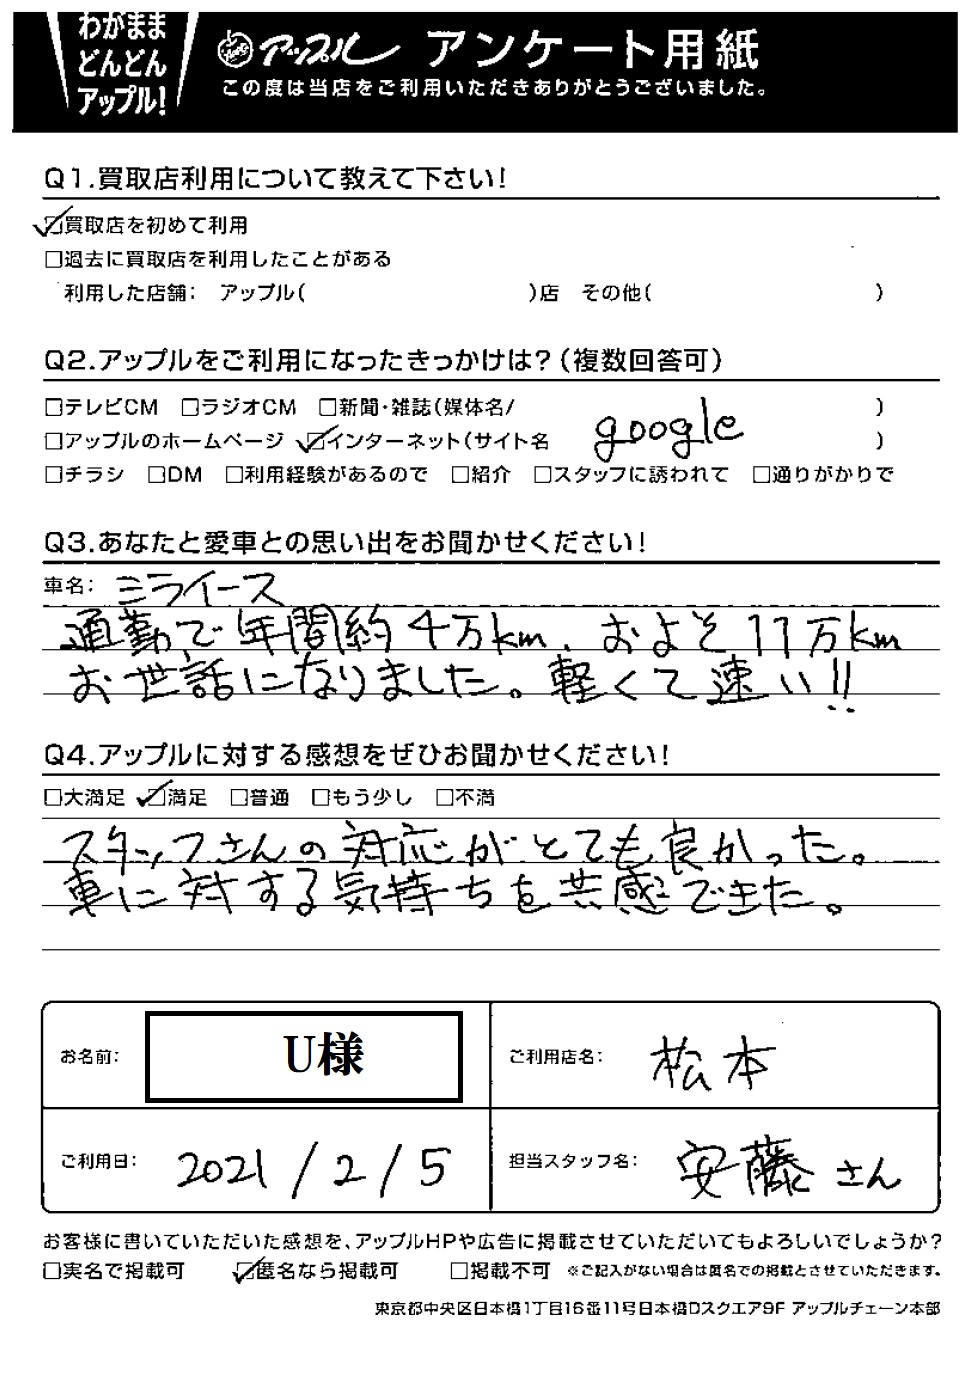 わがまま
どんどん
アップル!
アップル アンケート用紙
この度は当店をご利用いただきありがとうございました。
Q1.買取店利用について教えて下さい!
☑買取店を初めて利用
□過去に買取店を利用したことがある
利用した店舗: アップル( )店 その他( )
Q2.アップルをご利用になったきっかけは?(複数回答可)
□テレビCM □ラジオCM □新聞・雑誌(媒体名/ )
□アップルのホームページ ☑インターネット(サイト名 google )
□チラシ □DM □利用経験があるので □紹介 □スタッフに誘われて □通りがかりで
Q3.あなたと愛車との思い出をお聞かせください!
車名: ミライース
通勤で年間約4万km、およそ11万km
お世話になりました。軽くて速い!!
Q4.アップルに対する感想をぜひお聞かせください!
□大満足 ☑満足 □普通 □もう少し □不満
スタッフさんの対応がとても良かった。
車に対する気持ちを共感できた。
お名前: U様
ご利用店名: 松本
ご利用日: 2021/2/5
担当スタッフ名: 安藤さん
お客様に書いていただいた感想を、アップルHPや広告に掲載させていただいてもよろしいでしょうか?
□実名で掲載可 ☑匿名なら掲載可 □掲載不可 ※ご記入がない場合は匿名での掲載とさせていただきます。
東京都中央区日本橋1丁目16番11号日本橋Dスクエア9F アップルチェーン本部